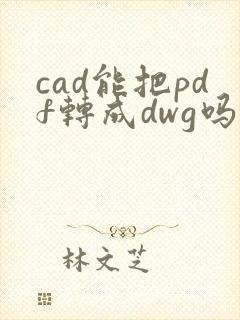 cad能把pd
f轉成dwg吗
林文芝